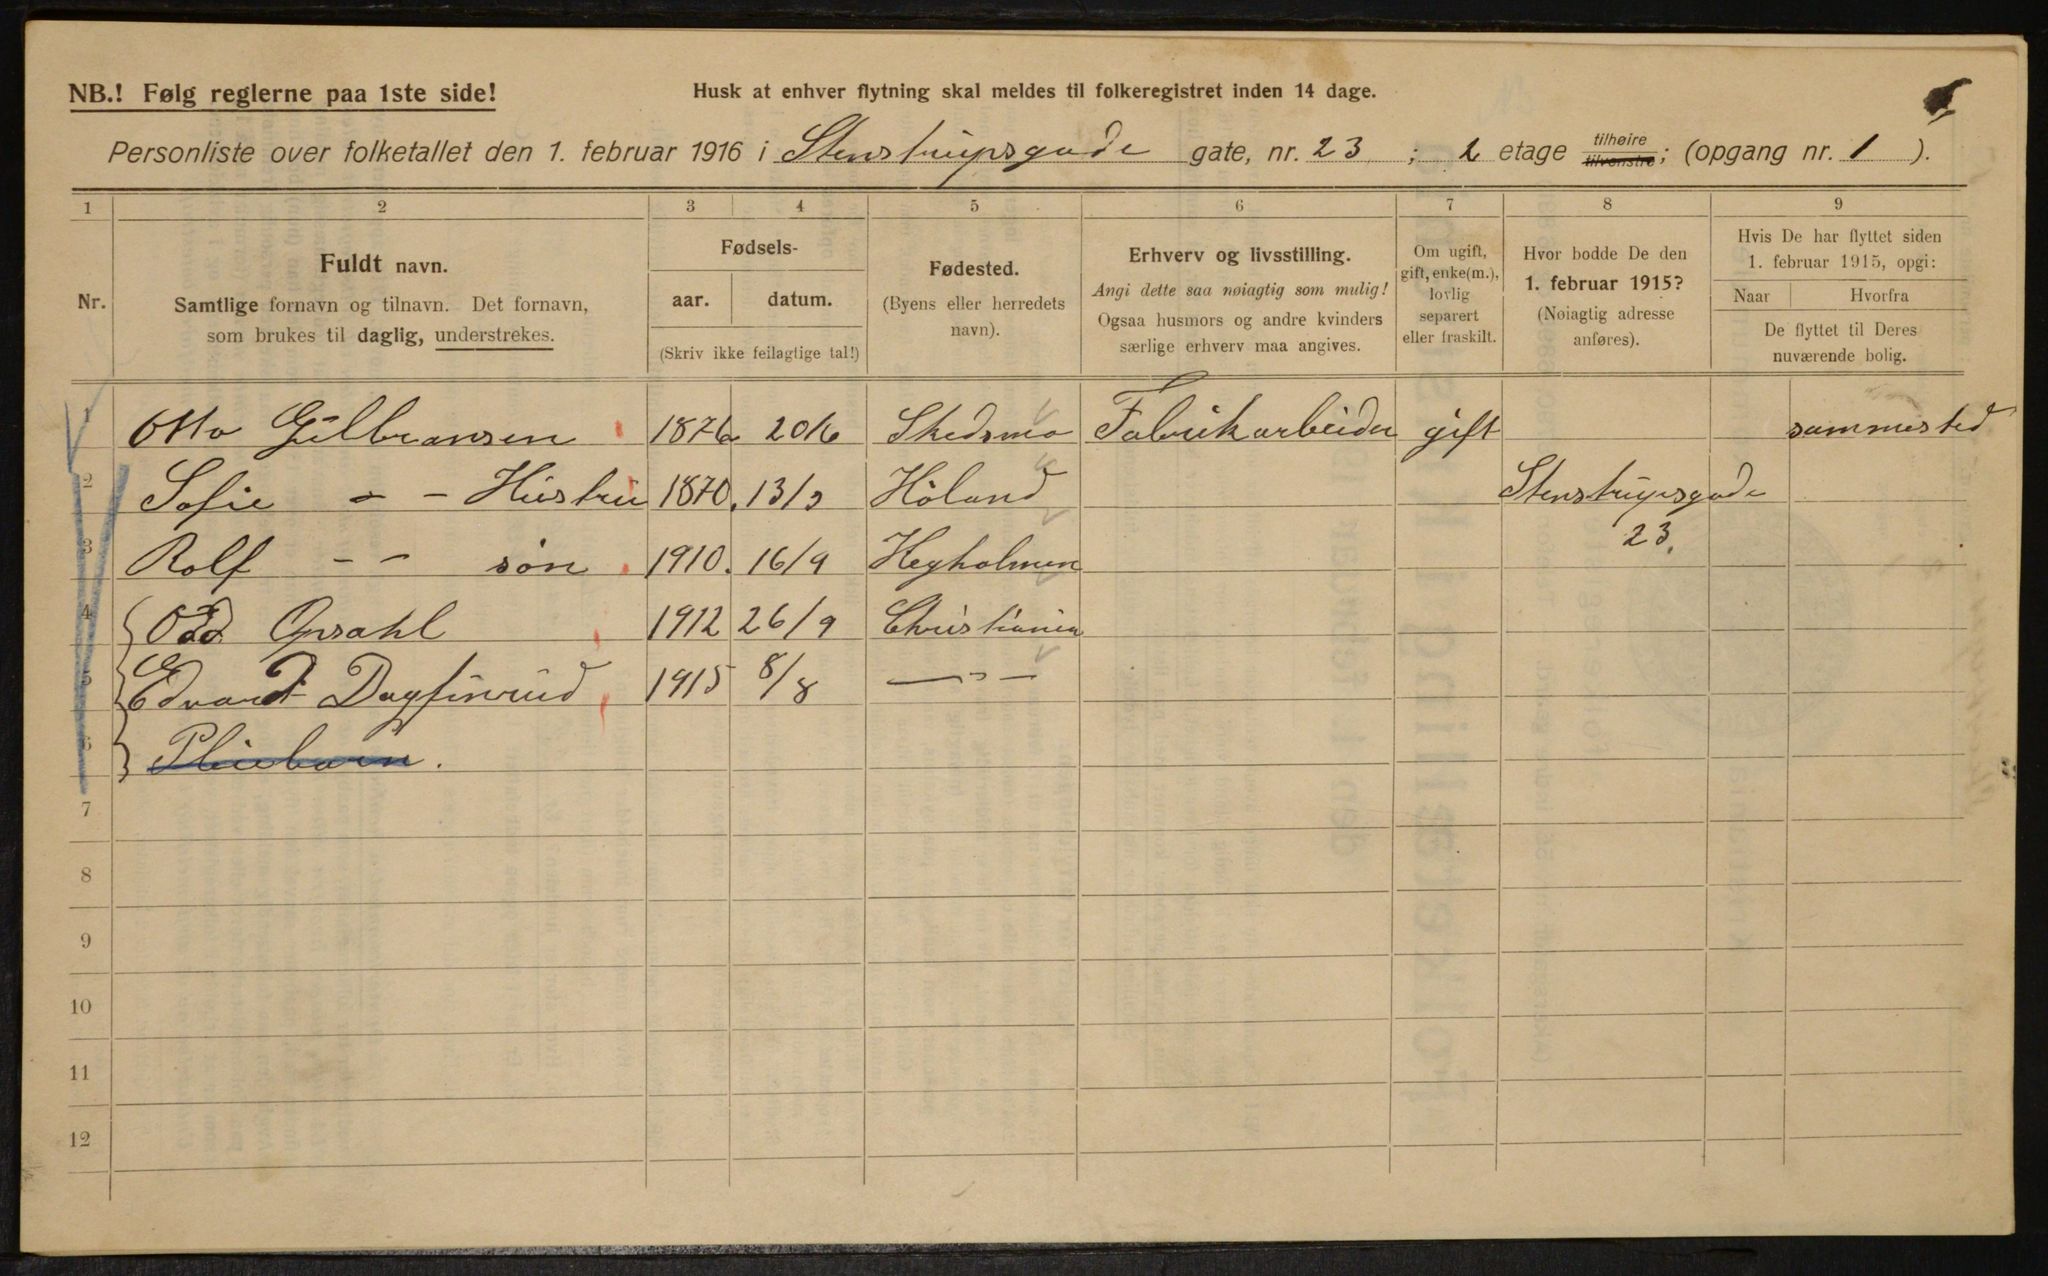 NB.! Følg reglerne paa 1ste side!
Husk at enhver flytning skal meldes til folkeregistret inden 14 dage.
Personliste over folketallet den 1. februar 1916 i Stenstrupsgade gate, nr. 23 ; 2 etage tilhøire tilvenstre; (opgang nr. 1 ).
1 2 3 4 5 6 7 8 9
Nr.
Fuldt navn.
Samtlige fornavn og tilnavn. Det fornavn,
som brukes til daglig, understrekes.
Fødsels-
aar. datum.
(Skriv ikke feilagtige tal!)
Fødested.
(Byens eller herredets
navn).
Erhverv og livsstilling.
Angi dette saa nøiagtig som mulig!
Ogsaa husmors og andre kvinders
særlige erhverv maa angives.
Om ugift,
gift, enke(m.),
lovlig
separert
eller fraskilt.
Hvor bodde De den
1. februar 1915?
(Nøiagtig adresse
anføres).
Hvis De har flyttet siden
1. februar 1915, opgi:
Naar Hvorfra
De flyttet til Deres
nuværende bolig.
1 Otto Gulbransen 1876 20/6 Skedsmo Fabrikarbeider gift sammested
2 Sofie - - Hustru 1870. 13/3 Höland Stenstrupsgade
23.
3 Rolf - - søn 1910. 16/9 Heyholmen
4 Odd Opsahl 1912 26/9 Christiania
5 Edvard Dagfinrud 1915 8/8 — " —
6 Pleiebarn.
7
8
9
10
11
12